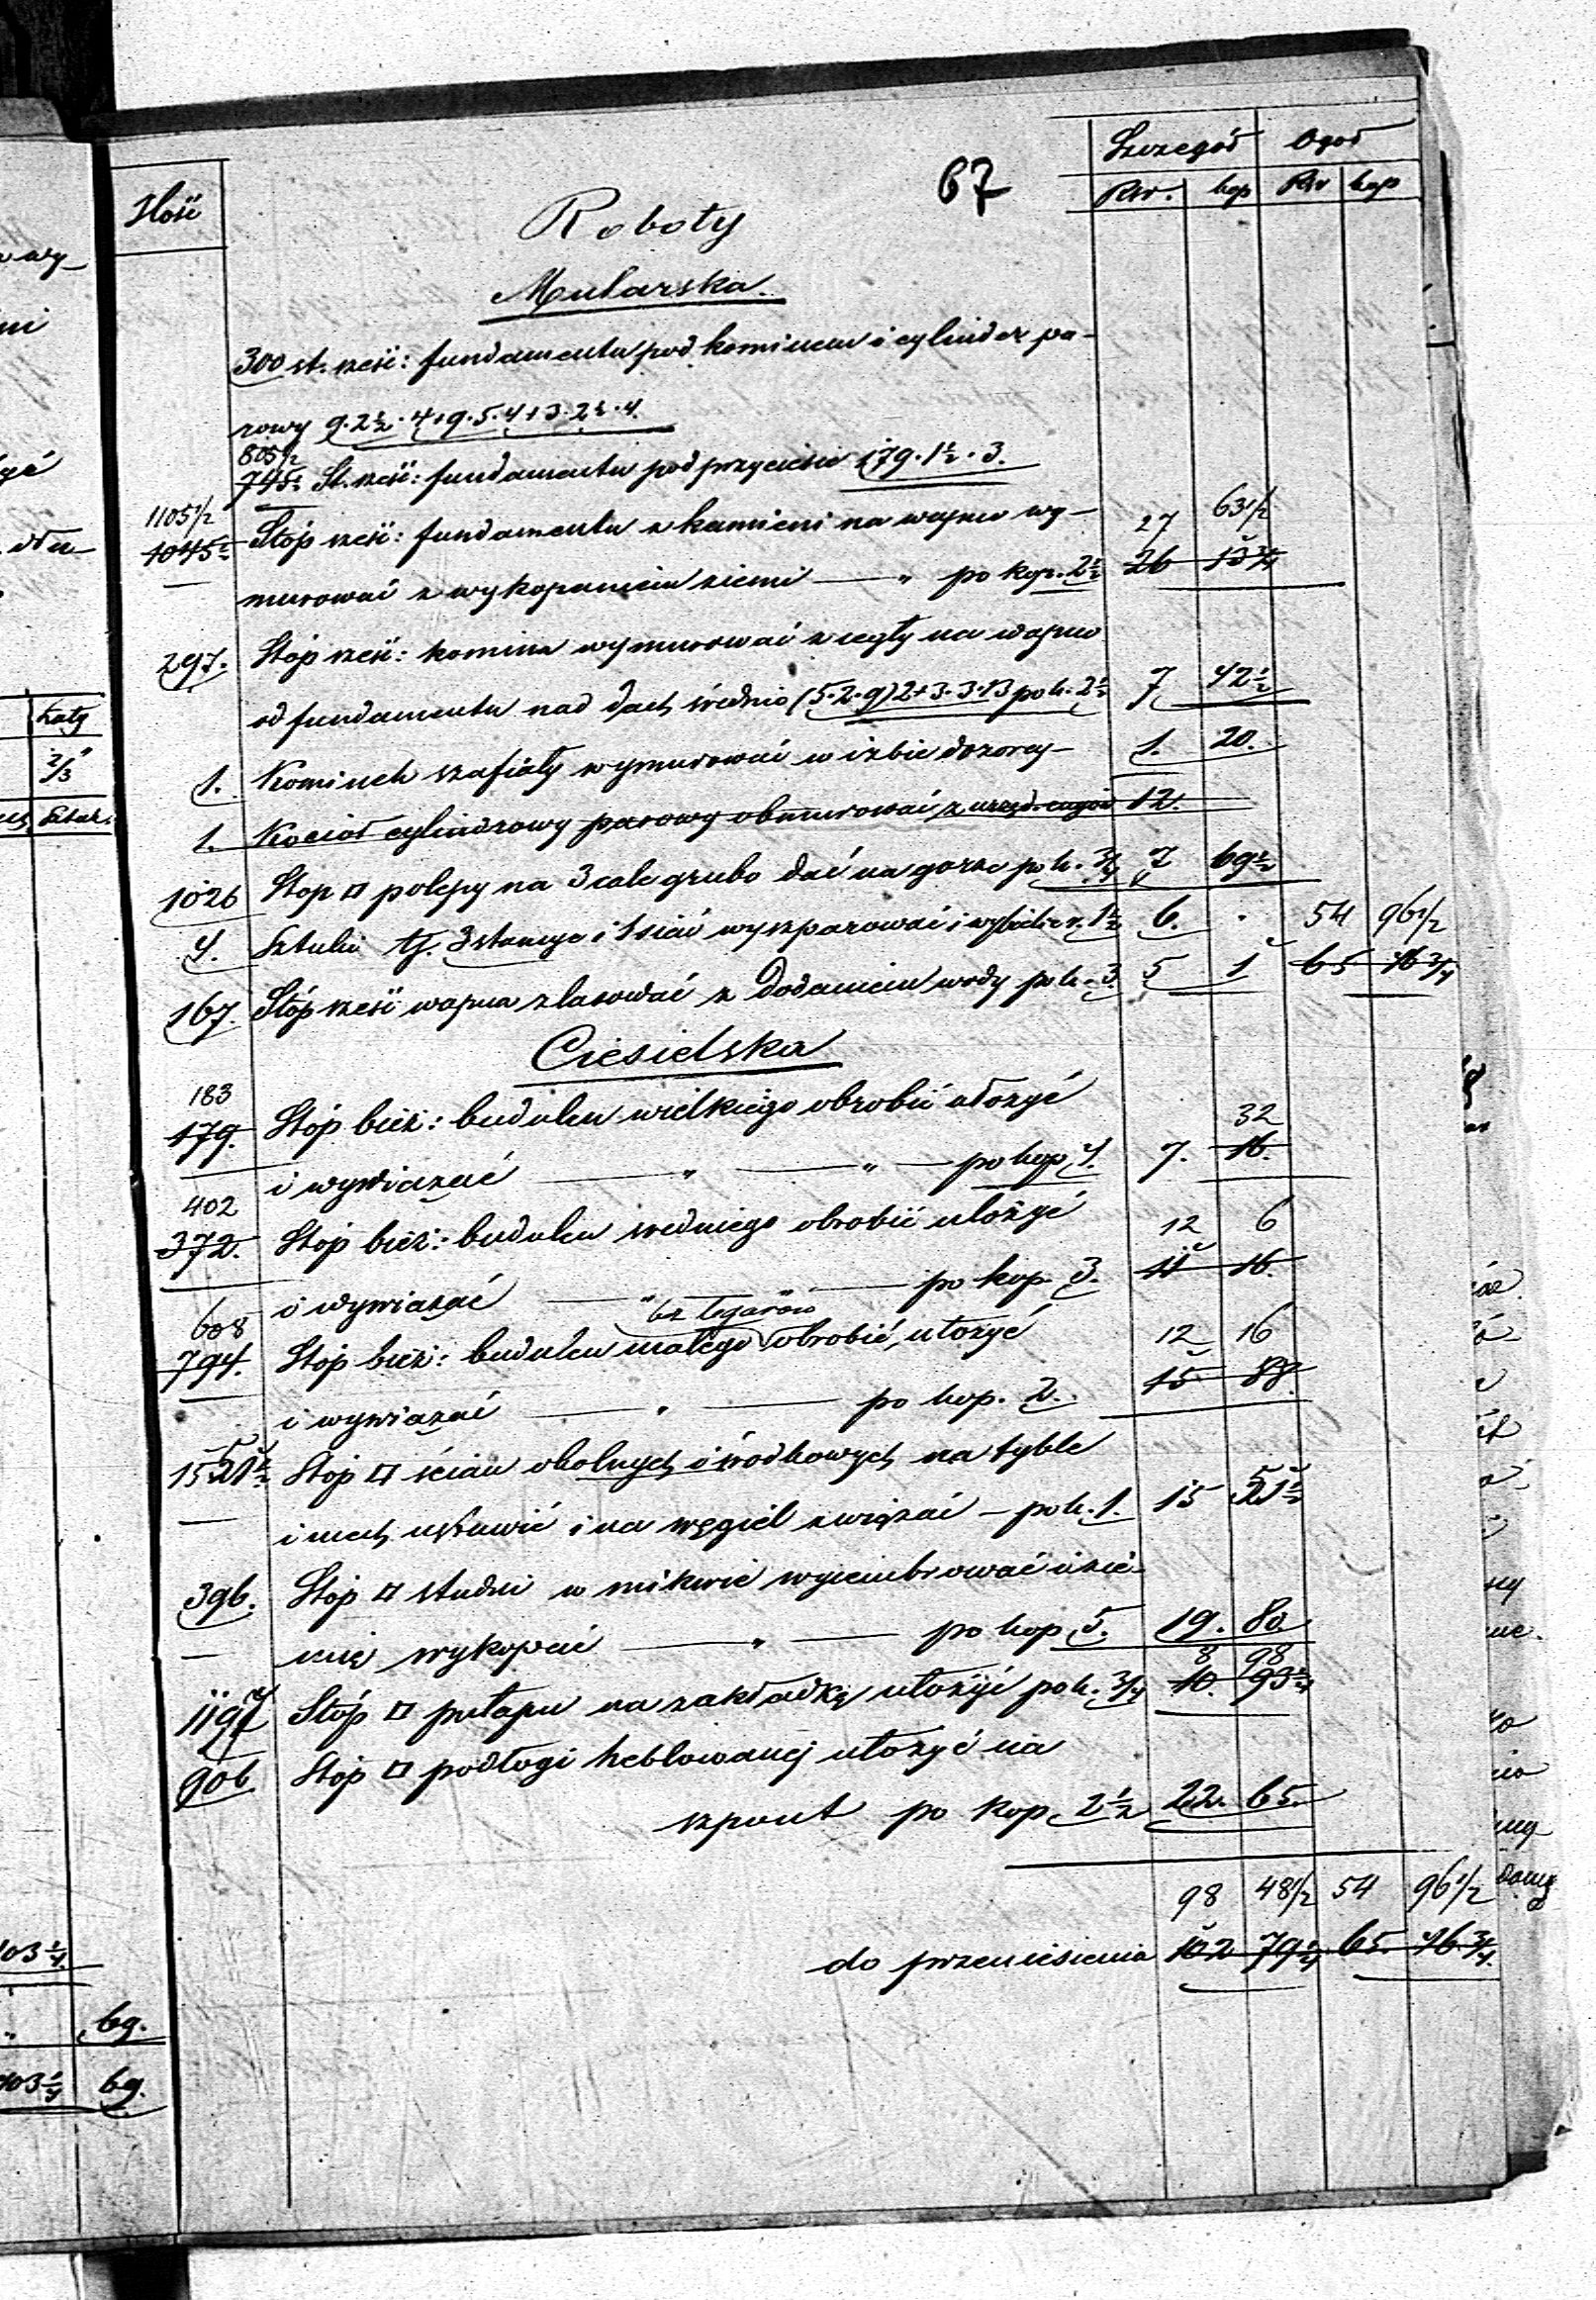 67
Ilość
Szczegół Ogół
Rsr. kop Rsr kop
Roboty
Mularska.
300 st. sześ: fundamentu pod kominem i cylinder pa-
rowy 9·2½·4+9·5·4+3·2½·4.
805½
745½ St. sześ: fundamentu pod przyciesie 179·1½·3.
1105½
1045½ Stóp sześ: fundamentu z kamieni na wapno wy- 27 63½
murować z wykopaniem ziemi — " po kop. 2½ 26 13¾
297. Stóp sześ: komina wymurować z cegły na wapno
od fundamentu nad dach średnio (5·2·9)2+3·3·13 po k. 2½ 7 42½
1. Kominek szafiasty wymurować w izbie dozorcy- 1. 20.
1. Kocioł cylindrowy parowy obmurować z 12.
1026 Stop □ polepy na 3 cale grubo dać na gorze po k. ¾ 7 69½
4. Sztuki tj. 3 stancye i 1 sień wyszparować i wybielić r. 1½ 6. . 54 96½
167. Stóp sześ wapna zlasować z dodaniem wody po k. 3. 5 1 65 16¾
Ciesielska
183
179. Stóp bież: budulcu wielkiego obrobić ułożyć 32
i wywiązać — " — " — po kop 4. 7. 16.
402
372. Stóp bież: budulcu średniego obrobić ułożyć 12 6
i wywiązać — " — po kop. 3. 11 16.
bez legarów
608
794. Stóp bież: budulcu małego obrobić, ułożyć 12 16
i wywiązać — " — po kop. 2. 15 88.
1551½ Stóp □ ścian okolnych i środkowych na tyble
i mech ustawić i na węgieł związać — po k. 1. 15 51½
396. Stóp □ studni w mikwie wycembrować i zie-
mię wykopać — " — po kop 5. 19. 80.
8 98
1197 Stóp □ pułapu na zakładkę ułożyć po k. ¾ 10. 93¾
906. Stóp □ podłogi heblowanej ułożyć na
szpunt po kop. 2½ 22. 65.
98 48½ 54 96½
do przeniesienia 102 79¼ 65. 16¾.